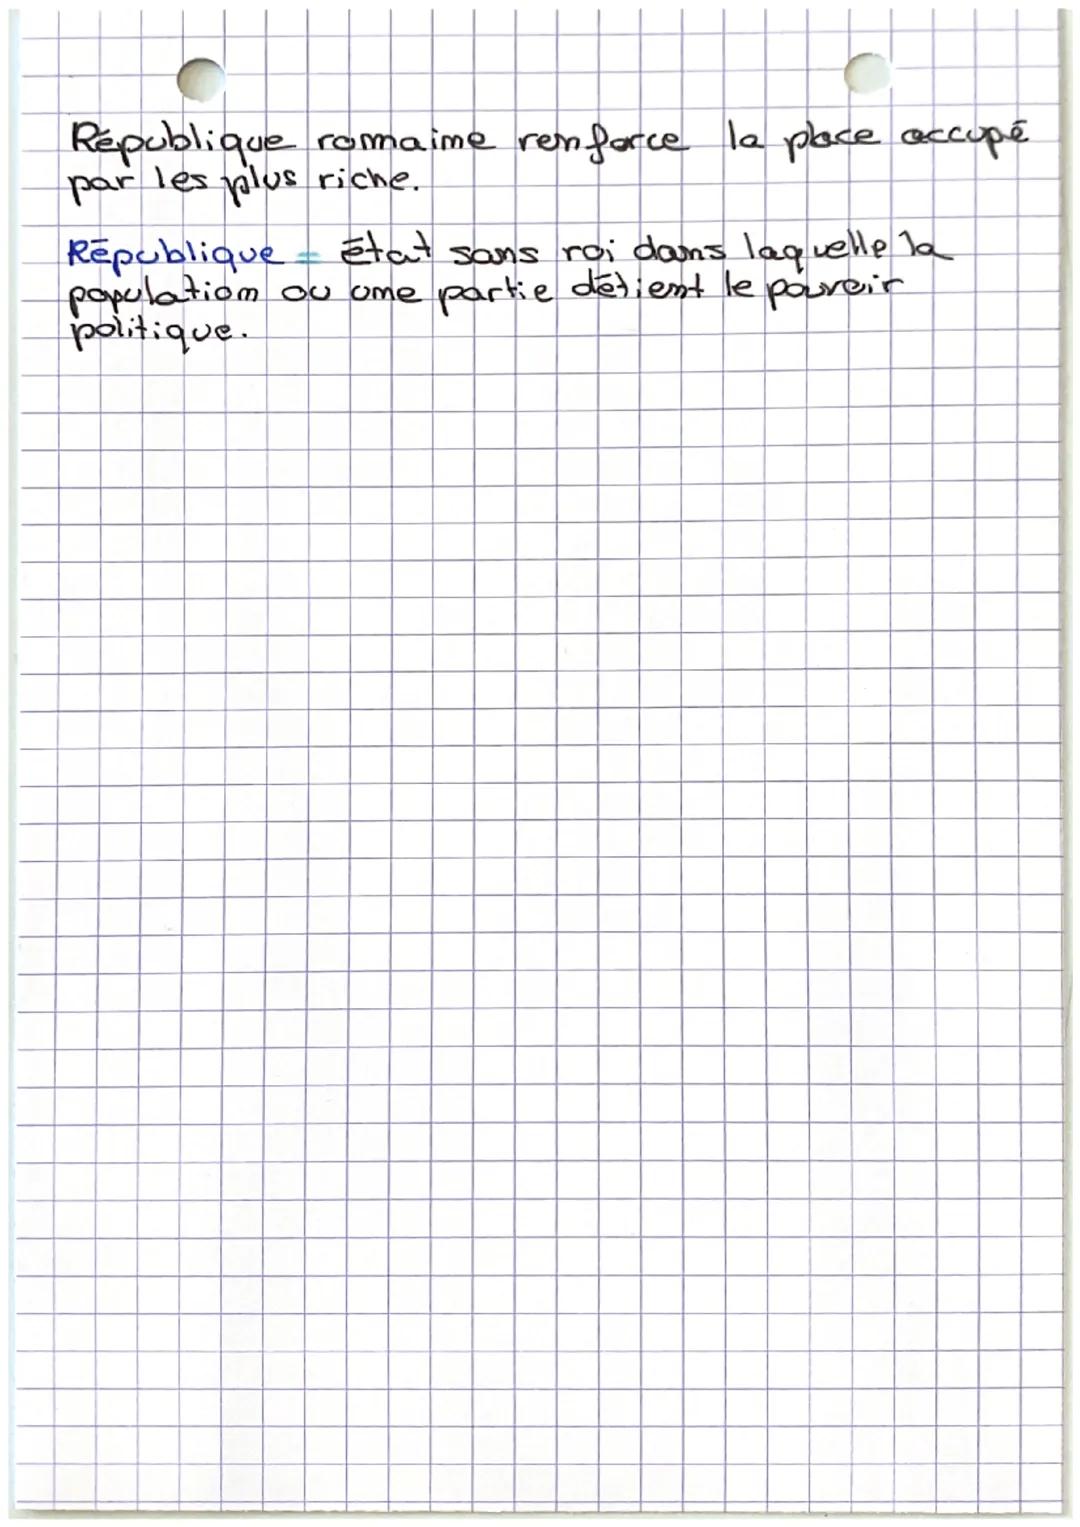 République romaine renforce la place occupé
par les plus riche.
République = état sans roi dans laquelle la
population ou une partie détient le pouvoir
politique.